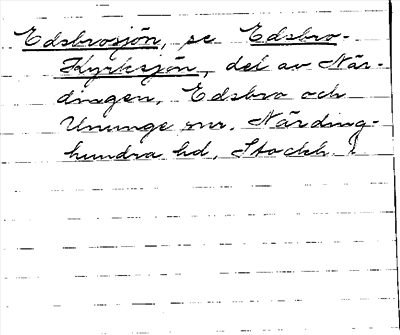 Edsbrosjön, se Edsbro-
Kyrksjön, del av När-
dingen, Edsbro och
Ununge snr, Närding-
hundra hd, Stockh. l